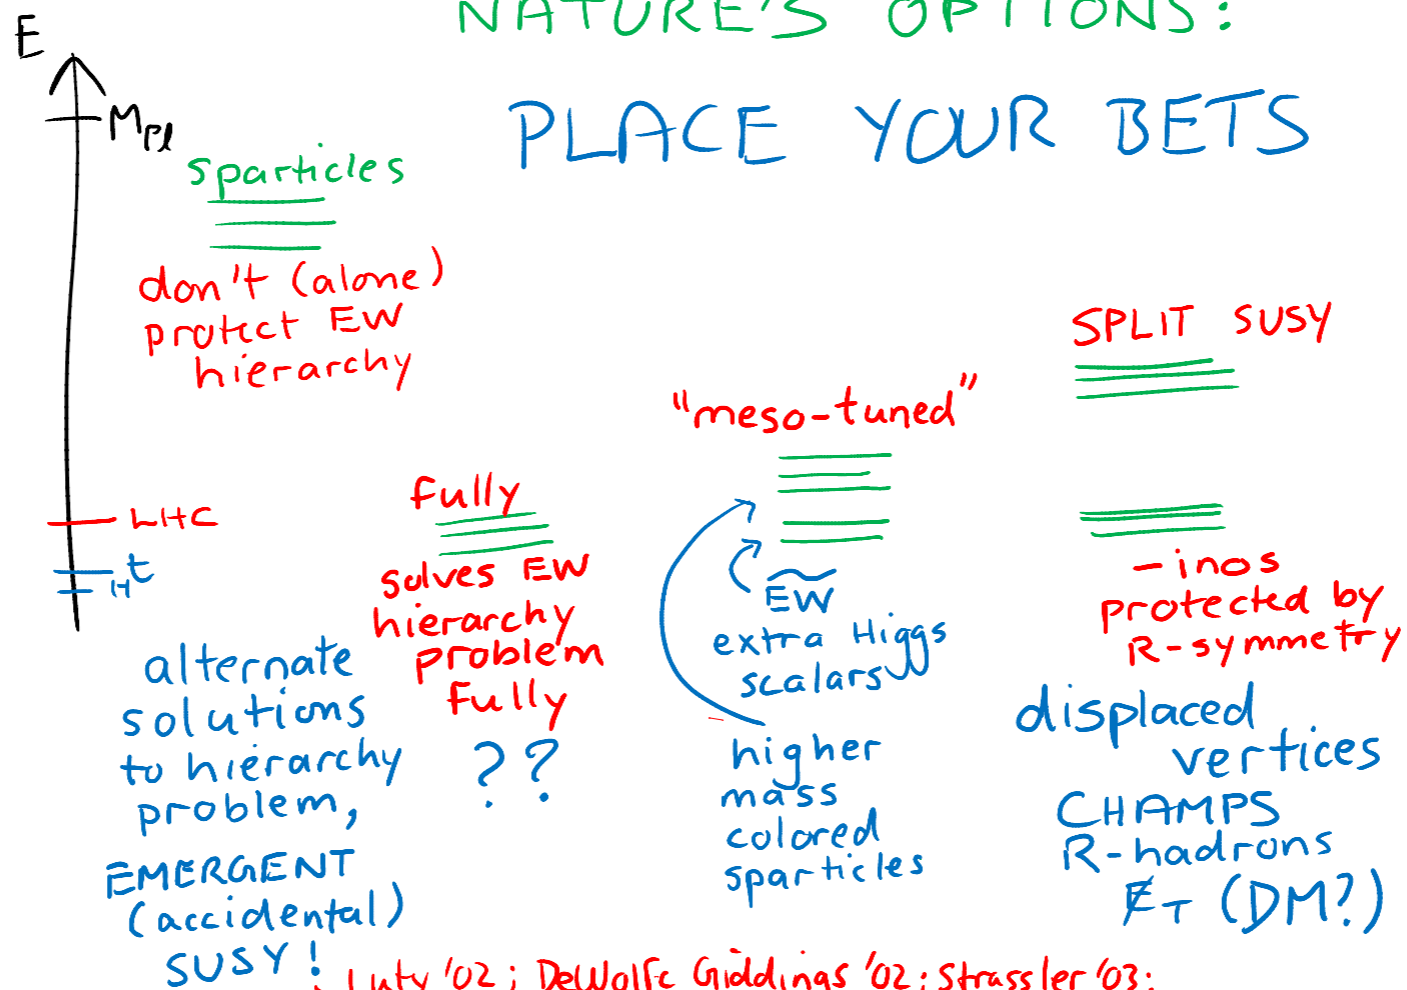 NATURE'S OPTIONS:
PLACE YOUR BETS
E
M_Pl
sparticles
don't (alone)
protect EW
hierarchy
LHC
t
H
alternate
solutions
to hierarchy
problem,
EMERGENT
(accidental)
SUSY!
Fully
solves EW
hierarchy
problem
Fully
??
"meso-tuned"
E͠W
extra Higgs
scalars
higher
mass
colored
sparticles
SPLIT SUSY
-inos
protected by
R-symmetry
displaced
vertices
CHAMPS
R-hadrons
E̸_T (DM?)
Luty '02; DeWolfe Giddings '02; Strassler '03;